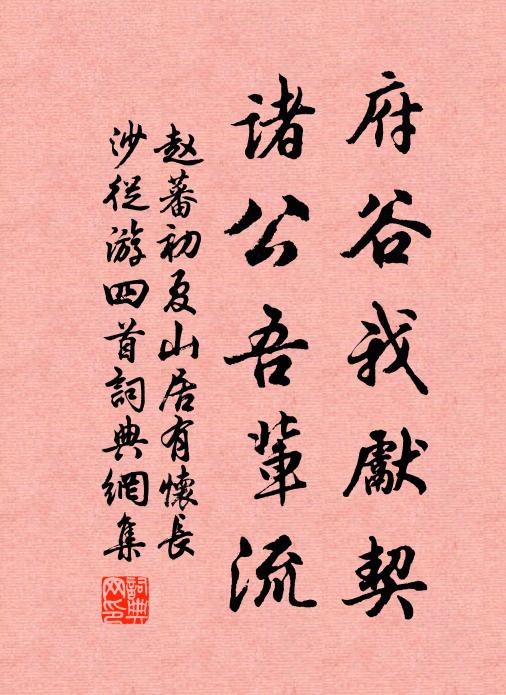 府谷我献契
諸公吾輩流
赵蕃初夏山居有懷長
沙從游四首詞典網集
詞典网印